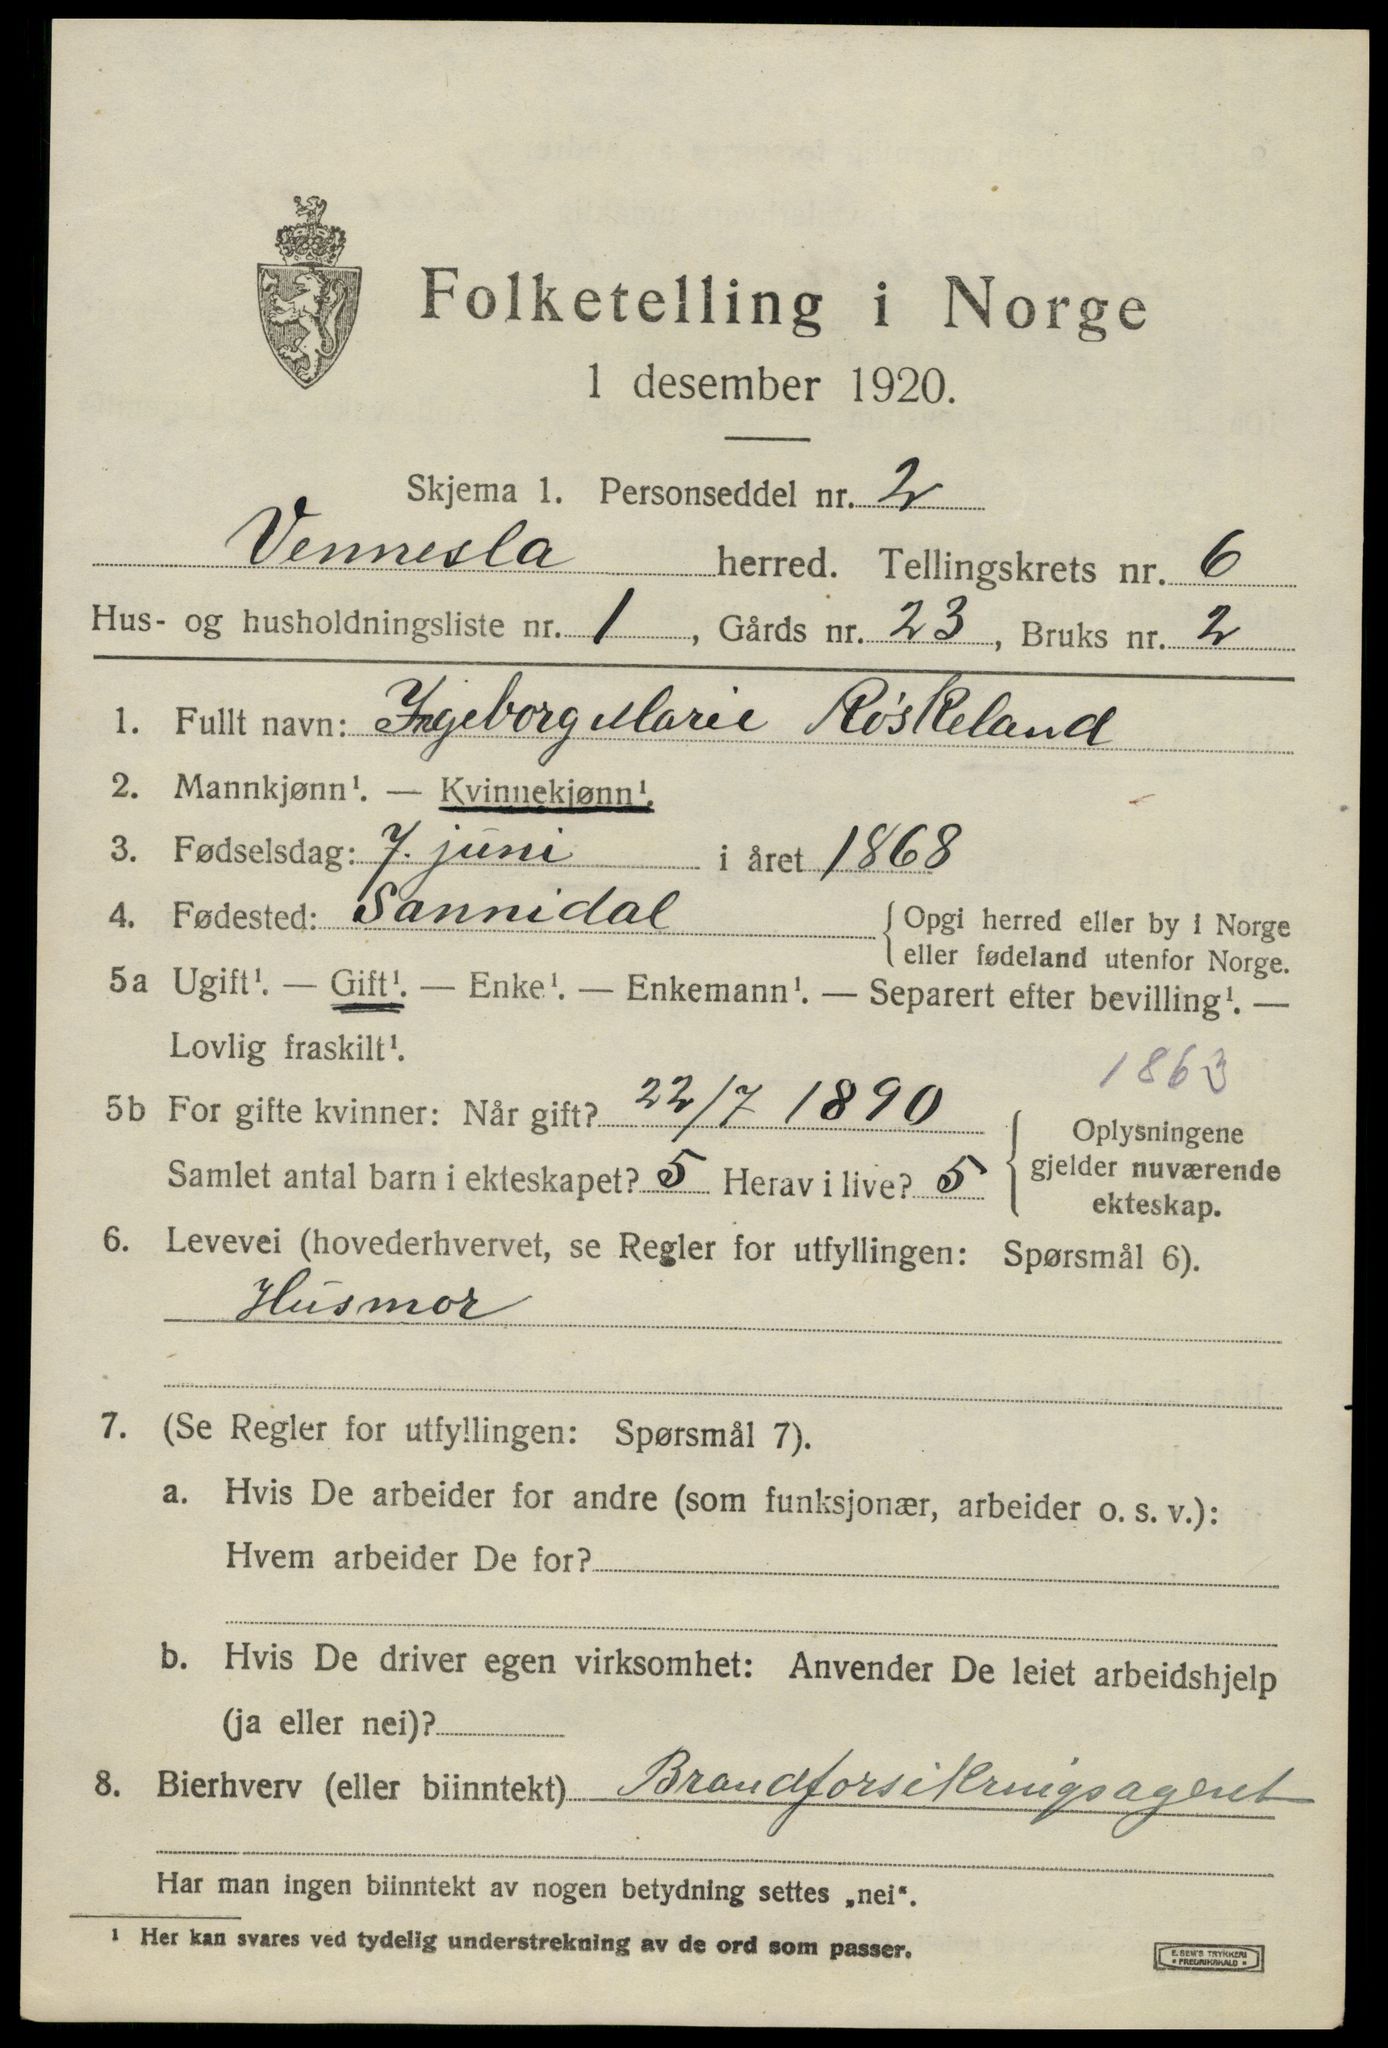 Folketelling i Norge
1 desember 1920.
Skjema 1. Personseddel nr. 2
Vennesla herred. Tellingskrets nr. 6
Hus- og husholdningsliste nr. 1, Gårds nr. 23, Bruks nr. 2
1. Fullt navn: Ingeborg Marie Röskeland
2. Mannkjønn¹. — Kvinnekjønn¹.
3. Fødselsdag: 7. juni i året 1868
4. Fødested: Sannidal { Opgi herred eller by i Norge
eller fødeland utenfor Norge.
5a Ugift¹. — Gift¹. — Enke¹. — Enkemann¹. — Separert efter bevilling¹. —
Lovlig fraskilt¹.
1863
5b For gifte kvinner: Når gift? 22/7 1890
Samlet antal barn i ekteskapet? 5 Herav i live? 5
{ Oplysningene
gjelder nuværende
ekteskap.
6. Levevei (hovederhvervet, se Regler for utfyllingen: Spørsmål 6).
Husmor
7. (Se Regler for utfyllingen: Spørsmål 7).
a. Hvis De arbeider for andre (som funksjonær, arbeider o. s. v.):
Hvem arbeider De for?
b. Hvis De driver egen virksomhet: Anvender De leiet arbeidshjelp
(ja eller nei)?
8. Bierhverv (eller biinntekt) Brandforsikringsagent
Har man ingen biinntekt av nogen betydning settes „nei“.
¹ Her kan svares ved tydelig understrekning av de ord som passer.
E. SEM'S TRYKKERI
* FREDRIKSHALD *